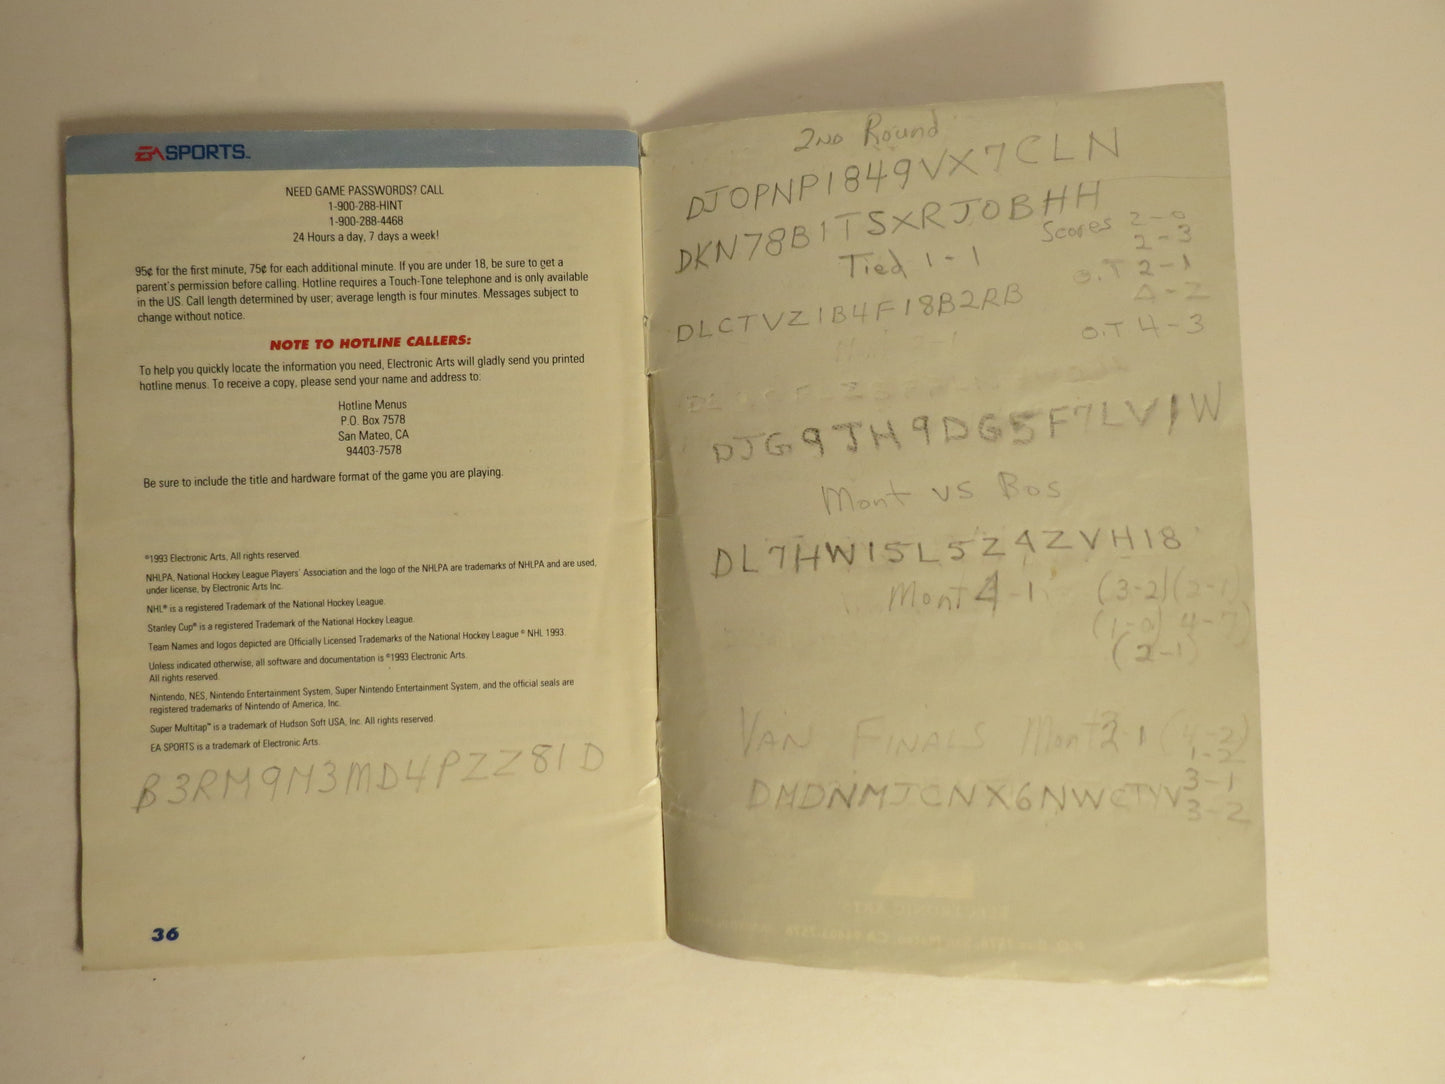 EA SPORTS™
NEED GAME PASSWORDS? CALL
1-900-288-HINT
1-900-288-4468
24 Hours a day, 7 days a week!
95¢ for the first minute, 75¢ for each additional minute. If you are under 18, be sure to get a
parent's permission before calling. Hotline requires a Touch-Tone telephone and is only available
in the US. Call length determined by user; average length is four minutes. Messages subject to
change without notice.
NOTE TO HOTLINE CALLERS:
To help you quickly locate the information you need, Electronic Arts will gladly send you printed
hotline menus. To receive a copy, please send your name and address to:
Hotline Menus
P.O. Box 7578
San Mateo, CA
94403-7578
Be sure to include the title and hardware format of the game you are playing.
©1993 Electronic Arts. All rights reserved.
NHLPA, National Hockey League Players' Association and the logo of the NHLPA are trademarks of NHLPA and are used,
under license, by Electronic Arts Inc.
NHL® is a registered Trademark of the National Hockey League.
Stanley Cup® is a registered Trademark of the National Hockey League.
Team Names and logos depicted are Officially Licensed Trademarks of the National Hockey League © NHL 1993.
Unless indicated otherwise, all software and documentation is ©1993 Electronic Arts.
All rights reserved.
Nintendo, NES, Nintendo Entertainment System, Super Nintendo Entertainment System, and the official seals are
registered trademarks of Nintendo of America, Inc.
Super Multitap™ is a trademark of Hudson Soft USA, Inc. All rights reserved.
EA SPORTS is a trademark of Electronic Arts.
B3RM9M3MD4PZZ81D
36
2ND Round
DJOPNP1849VX7CLN
DKN78B1TSXRJ0BHH
Tied 1-1
Scores 2-0
2-3
O.T 2-1
4-2
O.T 4-3
DLCTVZ1B4F18B2RB
DJG9JH9DG5F7LV1W
Mont vs Bos
DL7HW15L5Z4ZVH18
Mont 4-1
(3-2) (2-1)
(1-0) 4-7)
(2-1)
VAN FINALS Mont 3-1 (4-2)
1-2
3-1
3-2
DMDNMJCNX6NWCTYV